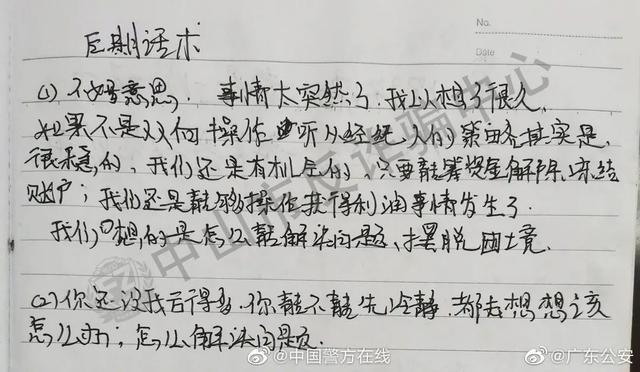 No.
Date
后期话术
(1) 不好意思，事情太突然了，我以想了很久
如果不是双向操作听从经纪人的策略其实是
很稳的，我们还是有机会的，只要能筹资金解除冻结
账户；我们还是能够操作获得利润事情发生了
我们想的是怎么能解决问题，摆脱困境.
(2) 你还没我后得多，你能不能先冷静，都去想想该
怎么办；怎么解决问题.
中山市反诈骗中心
@中国警方在线
@广东公安